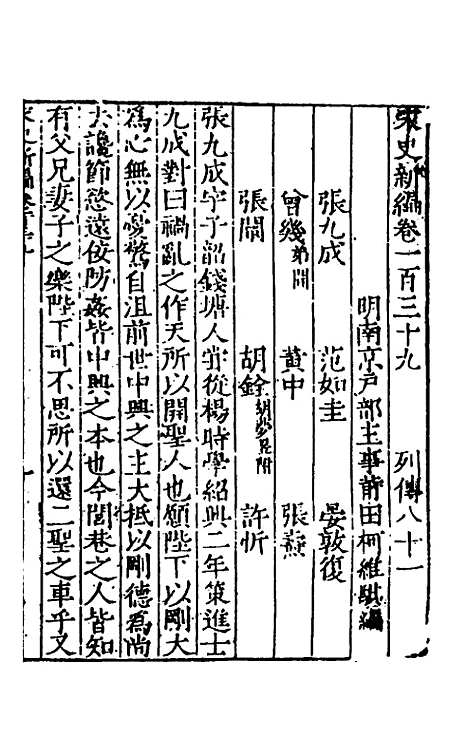 宋史新編卷一百三十九 列傳八十一
明南京戸部主事莆田柯維騏編
張九成 范如圭 晏敦復
曾幾弟開 黃中 張燾
張闡 胡銓 許忻
張九成字子韶錢塘人嘗從楊時學紹興二年策進士
九成對曰禍亂之作天所以開聖人也願陛下以剛大
爲心無以憂驚自沮前世中興之主大抵以剛德爲尚
去讒節慾遠佞防姦皆中興之本也今閭巷之人皆知
有父兄妻子之樂陛下可不思所以還二聖之車乎又
宋史新編